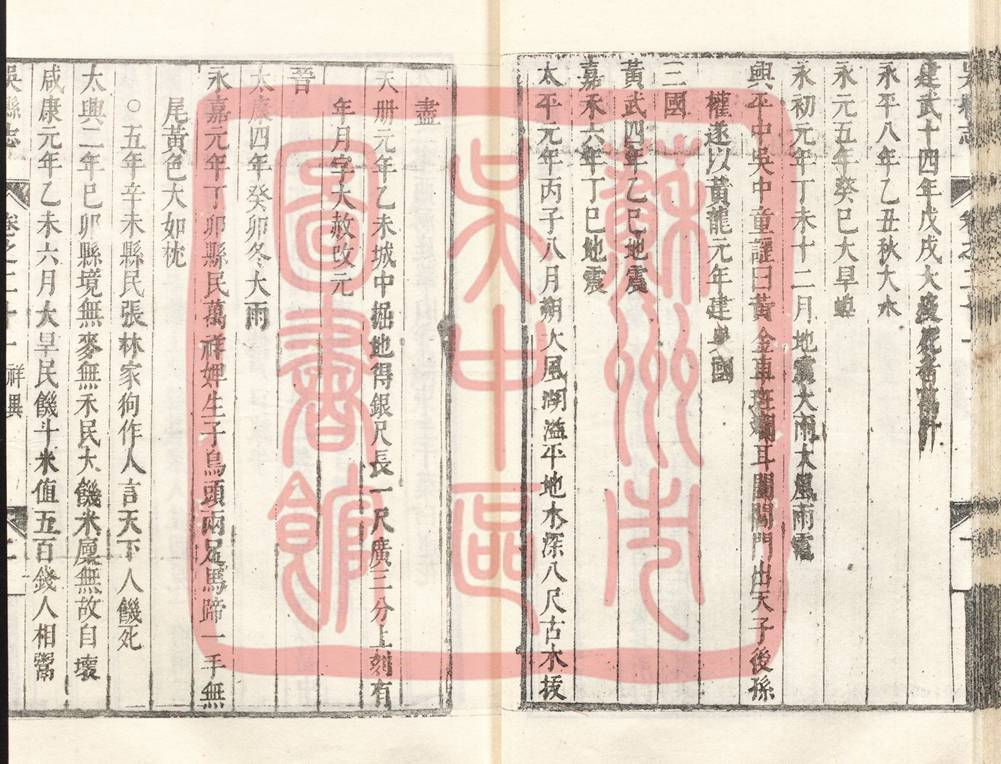 吳縣志 卷之二十一
建武十四年戊戌大疫死者萬計
永平八年乙丑秋大水
永元五年癸巳大旱蝗
永初元年丁未十二月地震大雨大風雨雹
興平中吳中童謠曰黃金車斑斕耳闓閶門出天子後孫
權遂以黃龍元年建吳國
三國
黃武四年乙巳地震
嘉禾六年丁巳地震
太平元年丙子八月朔大風湖溢平地水深八尺古木拔
盡
天册元年乙未城中掘地得銀尺長一尺廣三分上刻有
年月字大赦改元
晉
太康四年癸卯冬大雨
永嘉元年丁卯縣民萬祥婢生子鳥頭兩足馬蹄一手無
尾黃色大如枕
○五年辛未縣民張林家狗作人言天下人饑死
太興二年巳卯縣境無麥無禾民大饑米廩無故自壞
咸康元年乙未六月大旱民饑斗米值五百錢人相鬻
吳縣志 卷之二十一 祥異 二
蘇州市
吳中區
圖書館